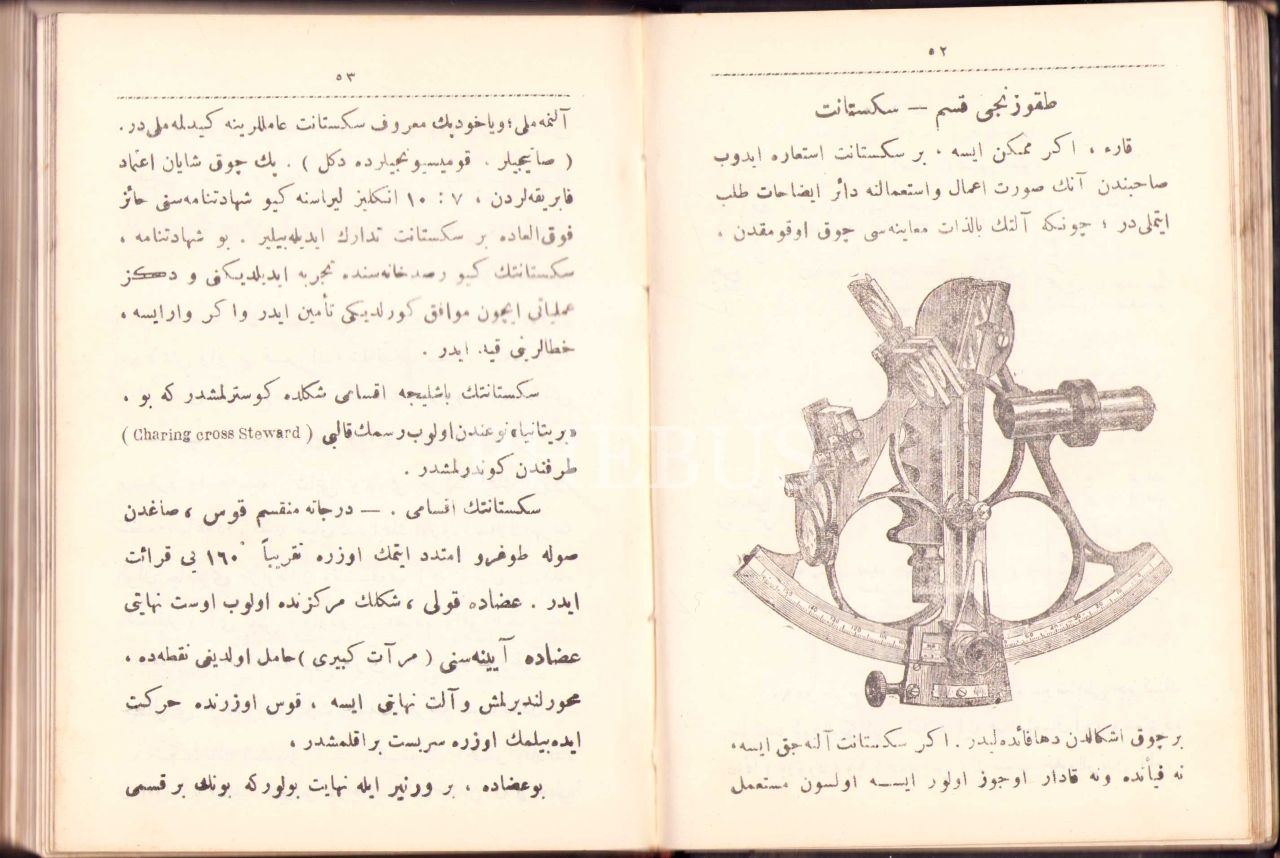 ٥٢
طقوزنجی قسم — سكستانت
قارء ، اكر ممكن ایسه ، بر سكستانت استعاره ایدوب
صاحبندن آنك صورت اعمال واستعمالنه دائر ایضاحات طلب
ایتملی‌در ؛ چونكه آلتك بالذات معاینه‌سی چوق اوقومقدن ،
بر چوق اشكالدن دها فائده‌لیدر . اكر سكستانت آلنه جق ایسه،
نه فیأنده ونه قادار اوجوز اولور ایسه اولسون مستعمل
٥٣
آلنمه‌ملی ؛ ویاخود پك معروف سكستانت عامللرینه كیدلمه‌ملی‌در.
( صاتیجیلر ، قومیسیونجیلرده دكل ) . پك چوق شایان اعتماد
فابریقه‌لردن ، ٧ : ١٠ انكلیز لیراسنه كیو شهادتنامه‌سنی حائز
فوق‌العاده بر سكستانت تدارك ایدیله‌بیلیر . بو شهادتنامه ،
سكستانتك كیو رصدخانه‌سنده تجربه ایدیلدیكنی و دكز
عملیاتی ایچون موافق كورلدیكنی تأمین ایدر واكر وارایسه ،
خطالرینی قید ایدر .
سكستانتك باشلیجه اقسامی شكلده كوسترلمشدر كه بو ،
«بریتانیا» نوعندن اولوب رسمك قالبی ( Charing cross Steward )
طرفندن كوندرلمشدر .
سكستانتك اقسامی . — درجاته منقسم قوس ، صاغدن
صوله طوغرو امتداد ایتمك اوزره تقریباً ١٦٠° یی قرائت
ایدر . عضاده قولی ، شكلك مركزنده اولوب اوست نهایتی
عضاده آیینه‌سنی ( مرآت كبیری ) حامل اولدیغی نقطه‌ده ،
محورلندیرلمش وآلت نهایتی ایسه ، قوس اوزرنده حركت
ایده‌بیلمك اوزره سربست براقلمشدر .
بو عضاده ، بر ورنیر ایله نهایت بولوركه بونك بر قسمی